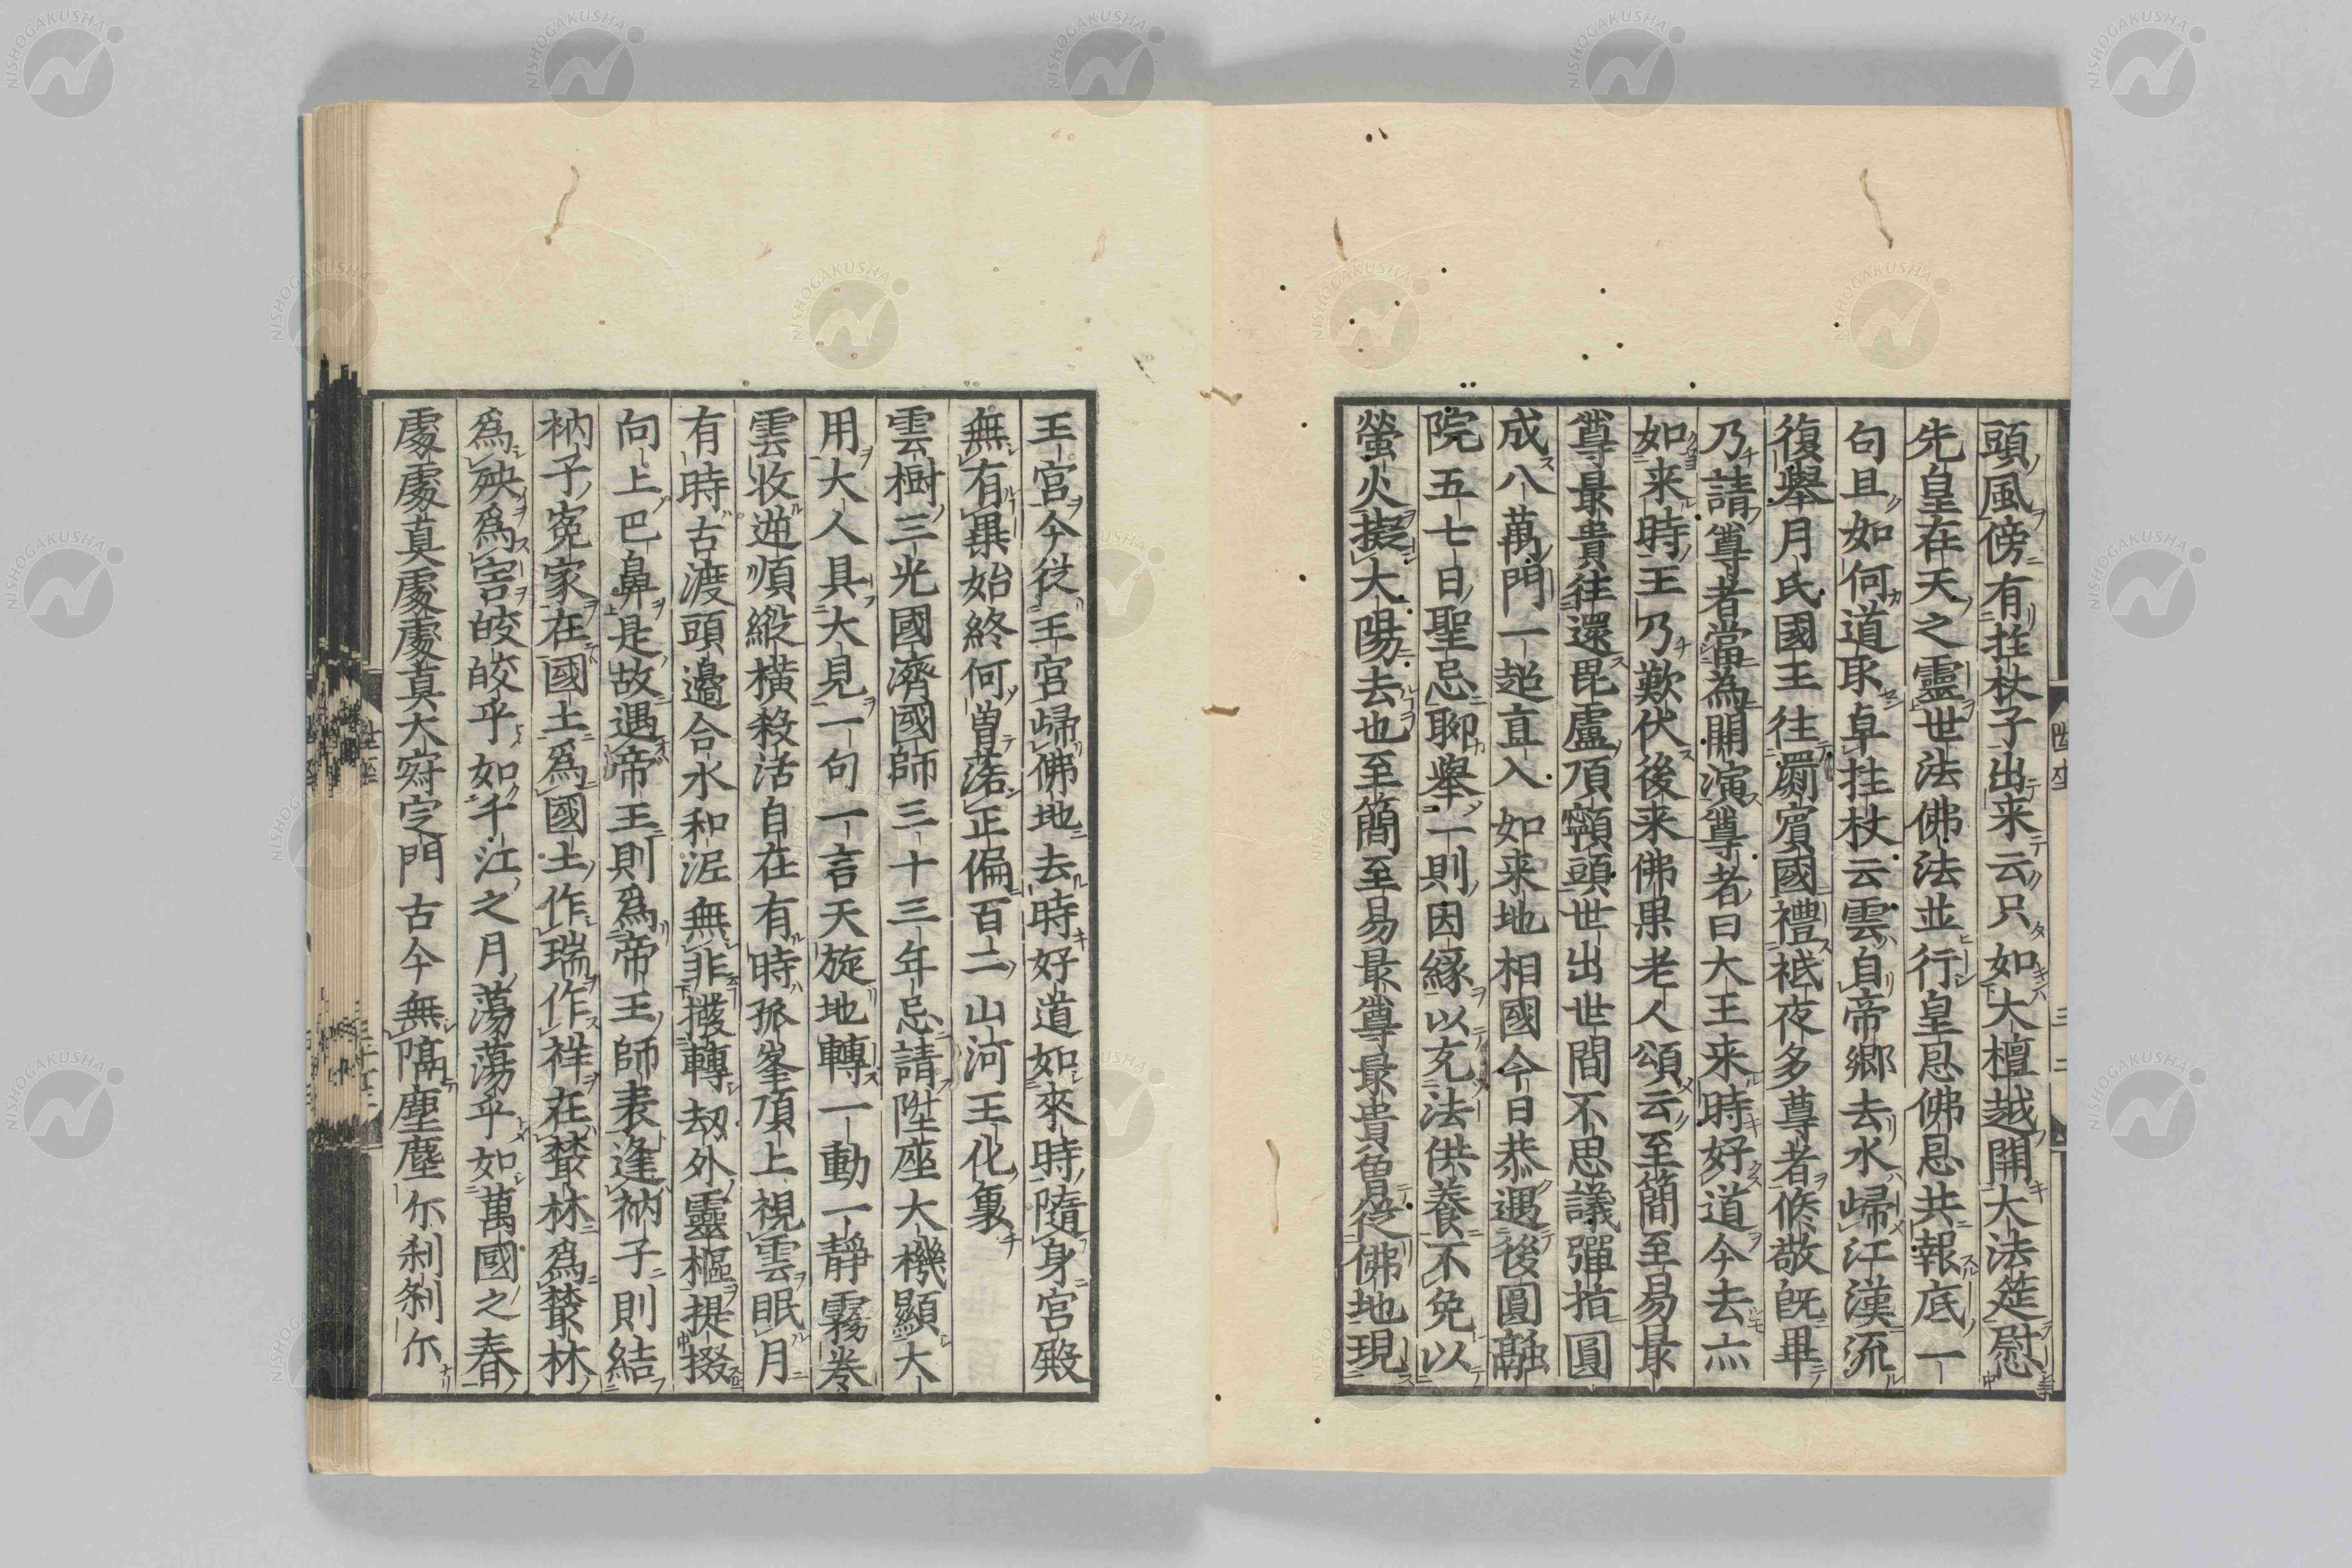 頭風傍有拄杖子出来云只如大檀越開大法筵慰
先皇在天之靈世法佛法並行皇恩佛恩共報底一
句且如何道取卓拄杖云雲自帝郷去水歸江漢流
復舉月氏國王往罽賓國禮祇夜多尊者候敬既畢
乃請尊者當為開演尊者曰大王来時好道今去亦
如来時王乃歎伏後来佛果老人頌云至簡至易最
尊最貴往還毘盧頂𩕳頭世出世間不思議彈指圓
成八萬門一超直入如来地相國今日恭遇後圓融
院五七日聖忌聊舉一則因緣以充法供養不免以
螢火擬大陽去也至簡至易最尊最貴曽從佛地現
王宮今從王宮歸佛地去時好道如來時隨身宮殿
無有異始終何曽落正偏百二山河王化裏
雲樹三光國濟國師三十三年忌請陞座大機顯大
用大人具大見一句一言天旋地轉一動一靜霧卷
雲收逆順縱横殺活自在有時孤峯頂上視雲眠月
有時古渡頭邉合水和泥無非撥轉劫外靈樞提掇
向上巴鼻是故遇帝王則爲帝王師表逢衲子則結
衲子寃家在國土爲國土作瑞作祥在叢林爲叢林
爲殃爲害皎皎乎如千江之月蕩蕩乎如萬國之春
處處真處處真大寂定門古今無隔塵塵尒刹刹尒